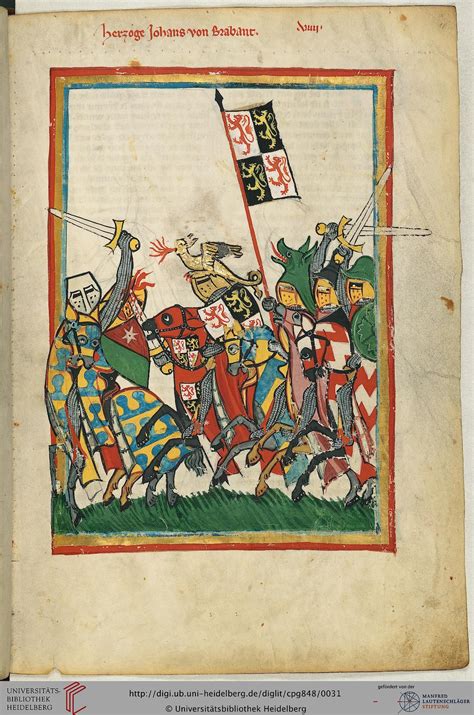 herzoge Johans von Brabant.
UNIVERSITÄTS-
BIBLIOTHEK
HEIDELBERG
http://digi.ub.uni-heidelberg.de/diglit/cpg848/0031
© Universitätsbibliothek Heidelberg
gefördert von der
MANFRED
LAUTENSCHLÄGER
STIFTUNG